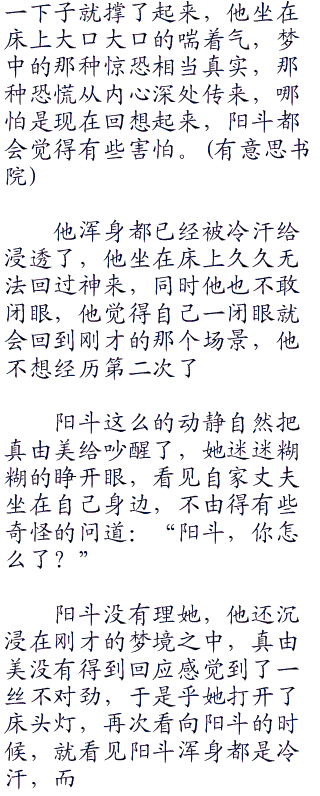 一下子就撑了起来，他坐在
床上大口大口的喘着气，梦
中的那种惊恐相当真实，那
种恐慌从内心深处传来，哪
怕是现在回想起来，阳斗都
会觉得有些害怕。(有意思书
院)
他浑身都已经被冷汗给
浸透了，他坐在床上久久无
法回过神来，同时他也不敢
闭眼，他觉得自己一闭眼就
会回到刚才的那个场景，他
不想经历第二次了
阳斗这么的动静自然把
真由美给吵醒了，她迷迷糊
糊的睁开眼，看见自家丈夫
坐在自己身边，不由得有些
奇怪的问道：“阳斗，你怎
么了？”
阳斗没有理她，他还沉
浸在刚才的梦境之中，真由
美没有得到回应感觉到了一
丝不对劲，于是乎她打开了
床头灯，再次看向阳斗的时
候，就看见阳斗浑身都是冷
汗，而